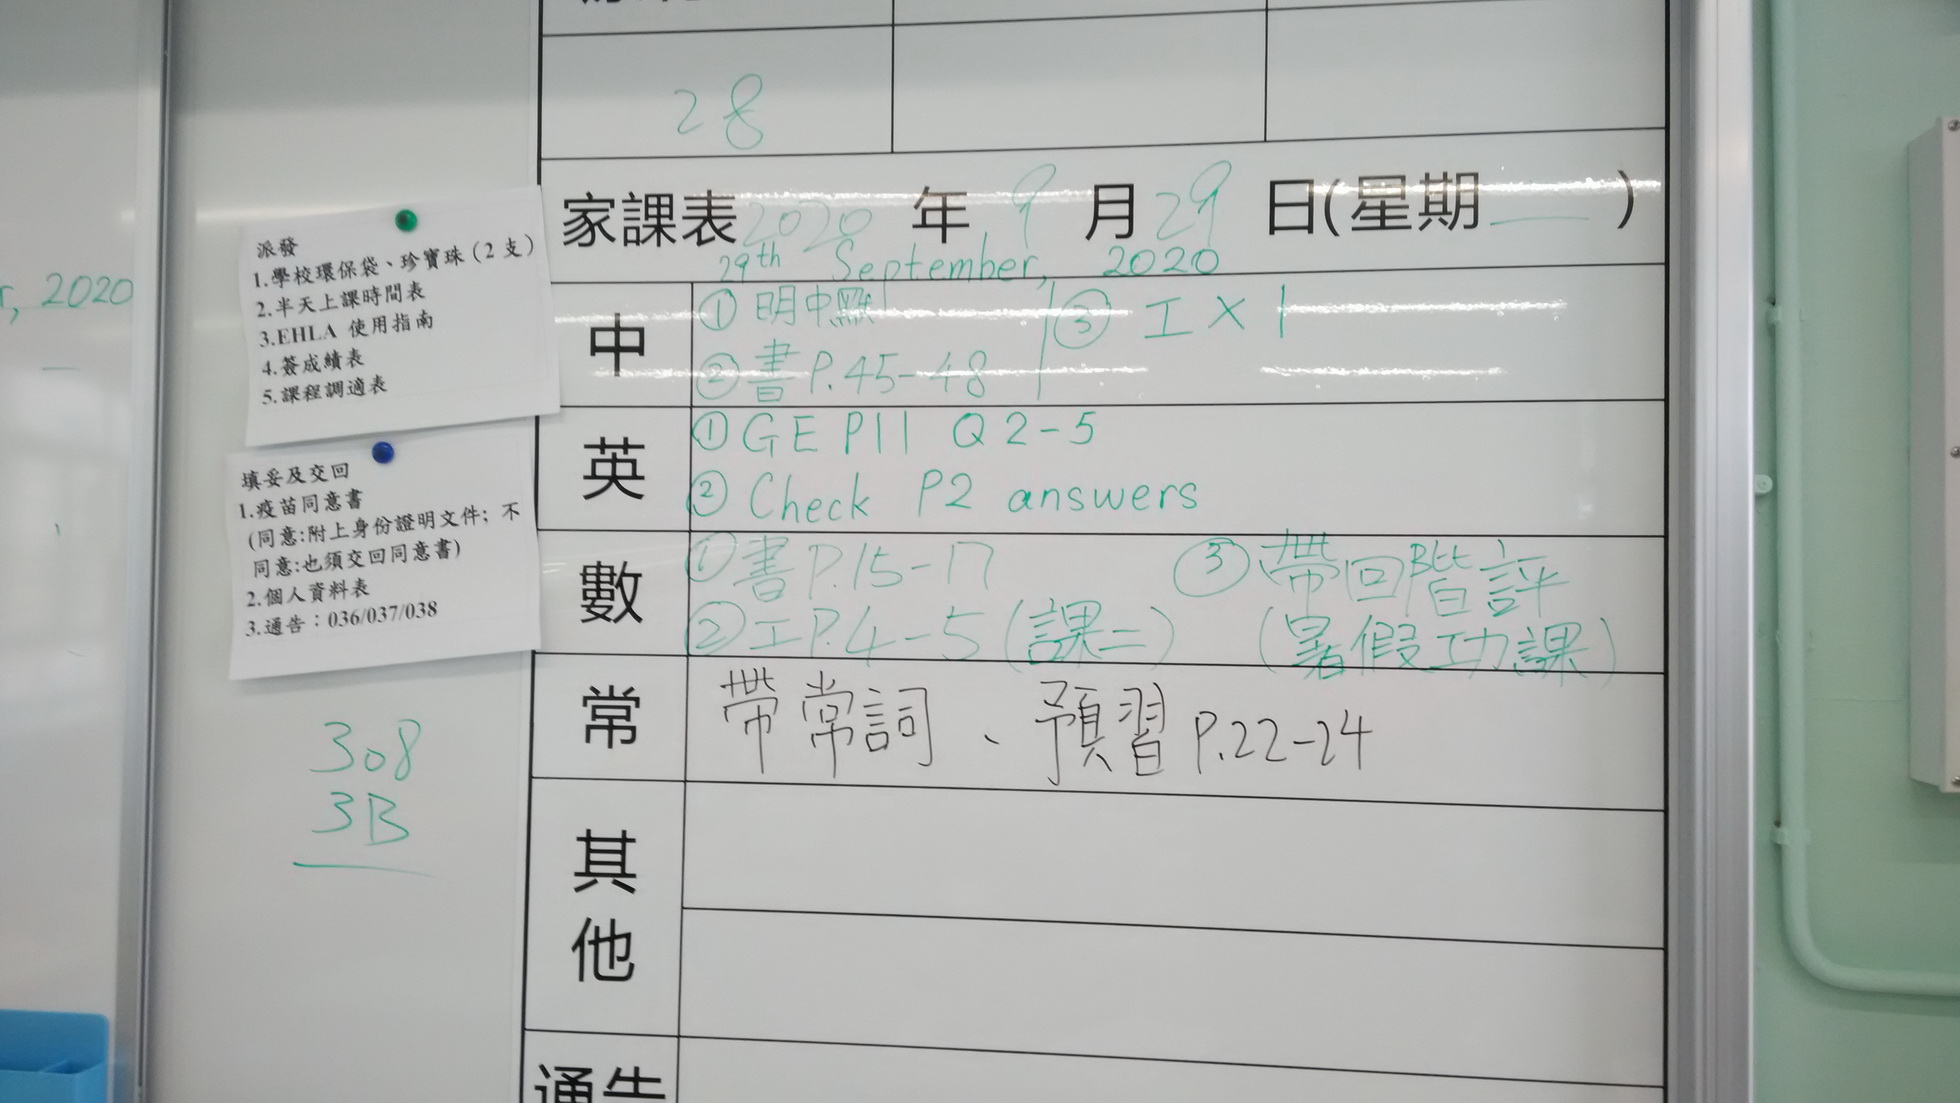 28
家課表 2020 年 9 月 29 日(星期 二 )
29th September, 2020
中
① 明中默
② 書 P.45-48
③ 工 × 1
英
① GE P11 Q2-5
② Check P2 answers
數
① 書 P.15-17
② 工 P.4-5 (課二)
③ 帶回階評
(暑假功課)
常
帶常詞、預習 P.22-24
其他
通告
派發
1.學校環保袋、珍寶珠(2支)
2.半天上課時間表
3.EHLA 使用指南
4.簽成績表
5.課程調適表
填妥及交回
1.疫苗同意書
(同意:附上身份證明文件; 不
同意:也須交回同意書)
2.個人資料表
3.通告:036/037/038
308
3B
r, 2020